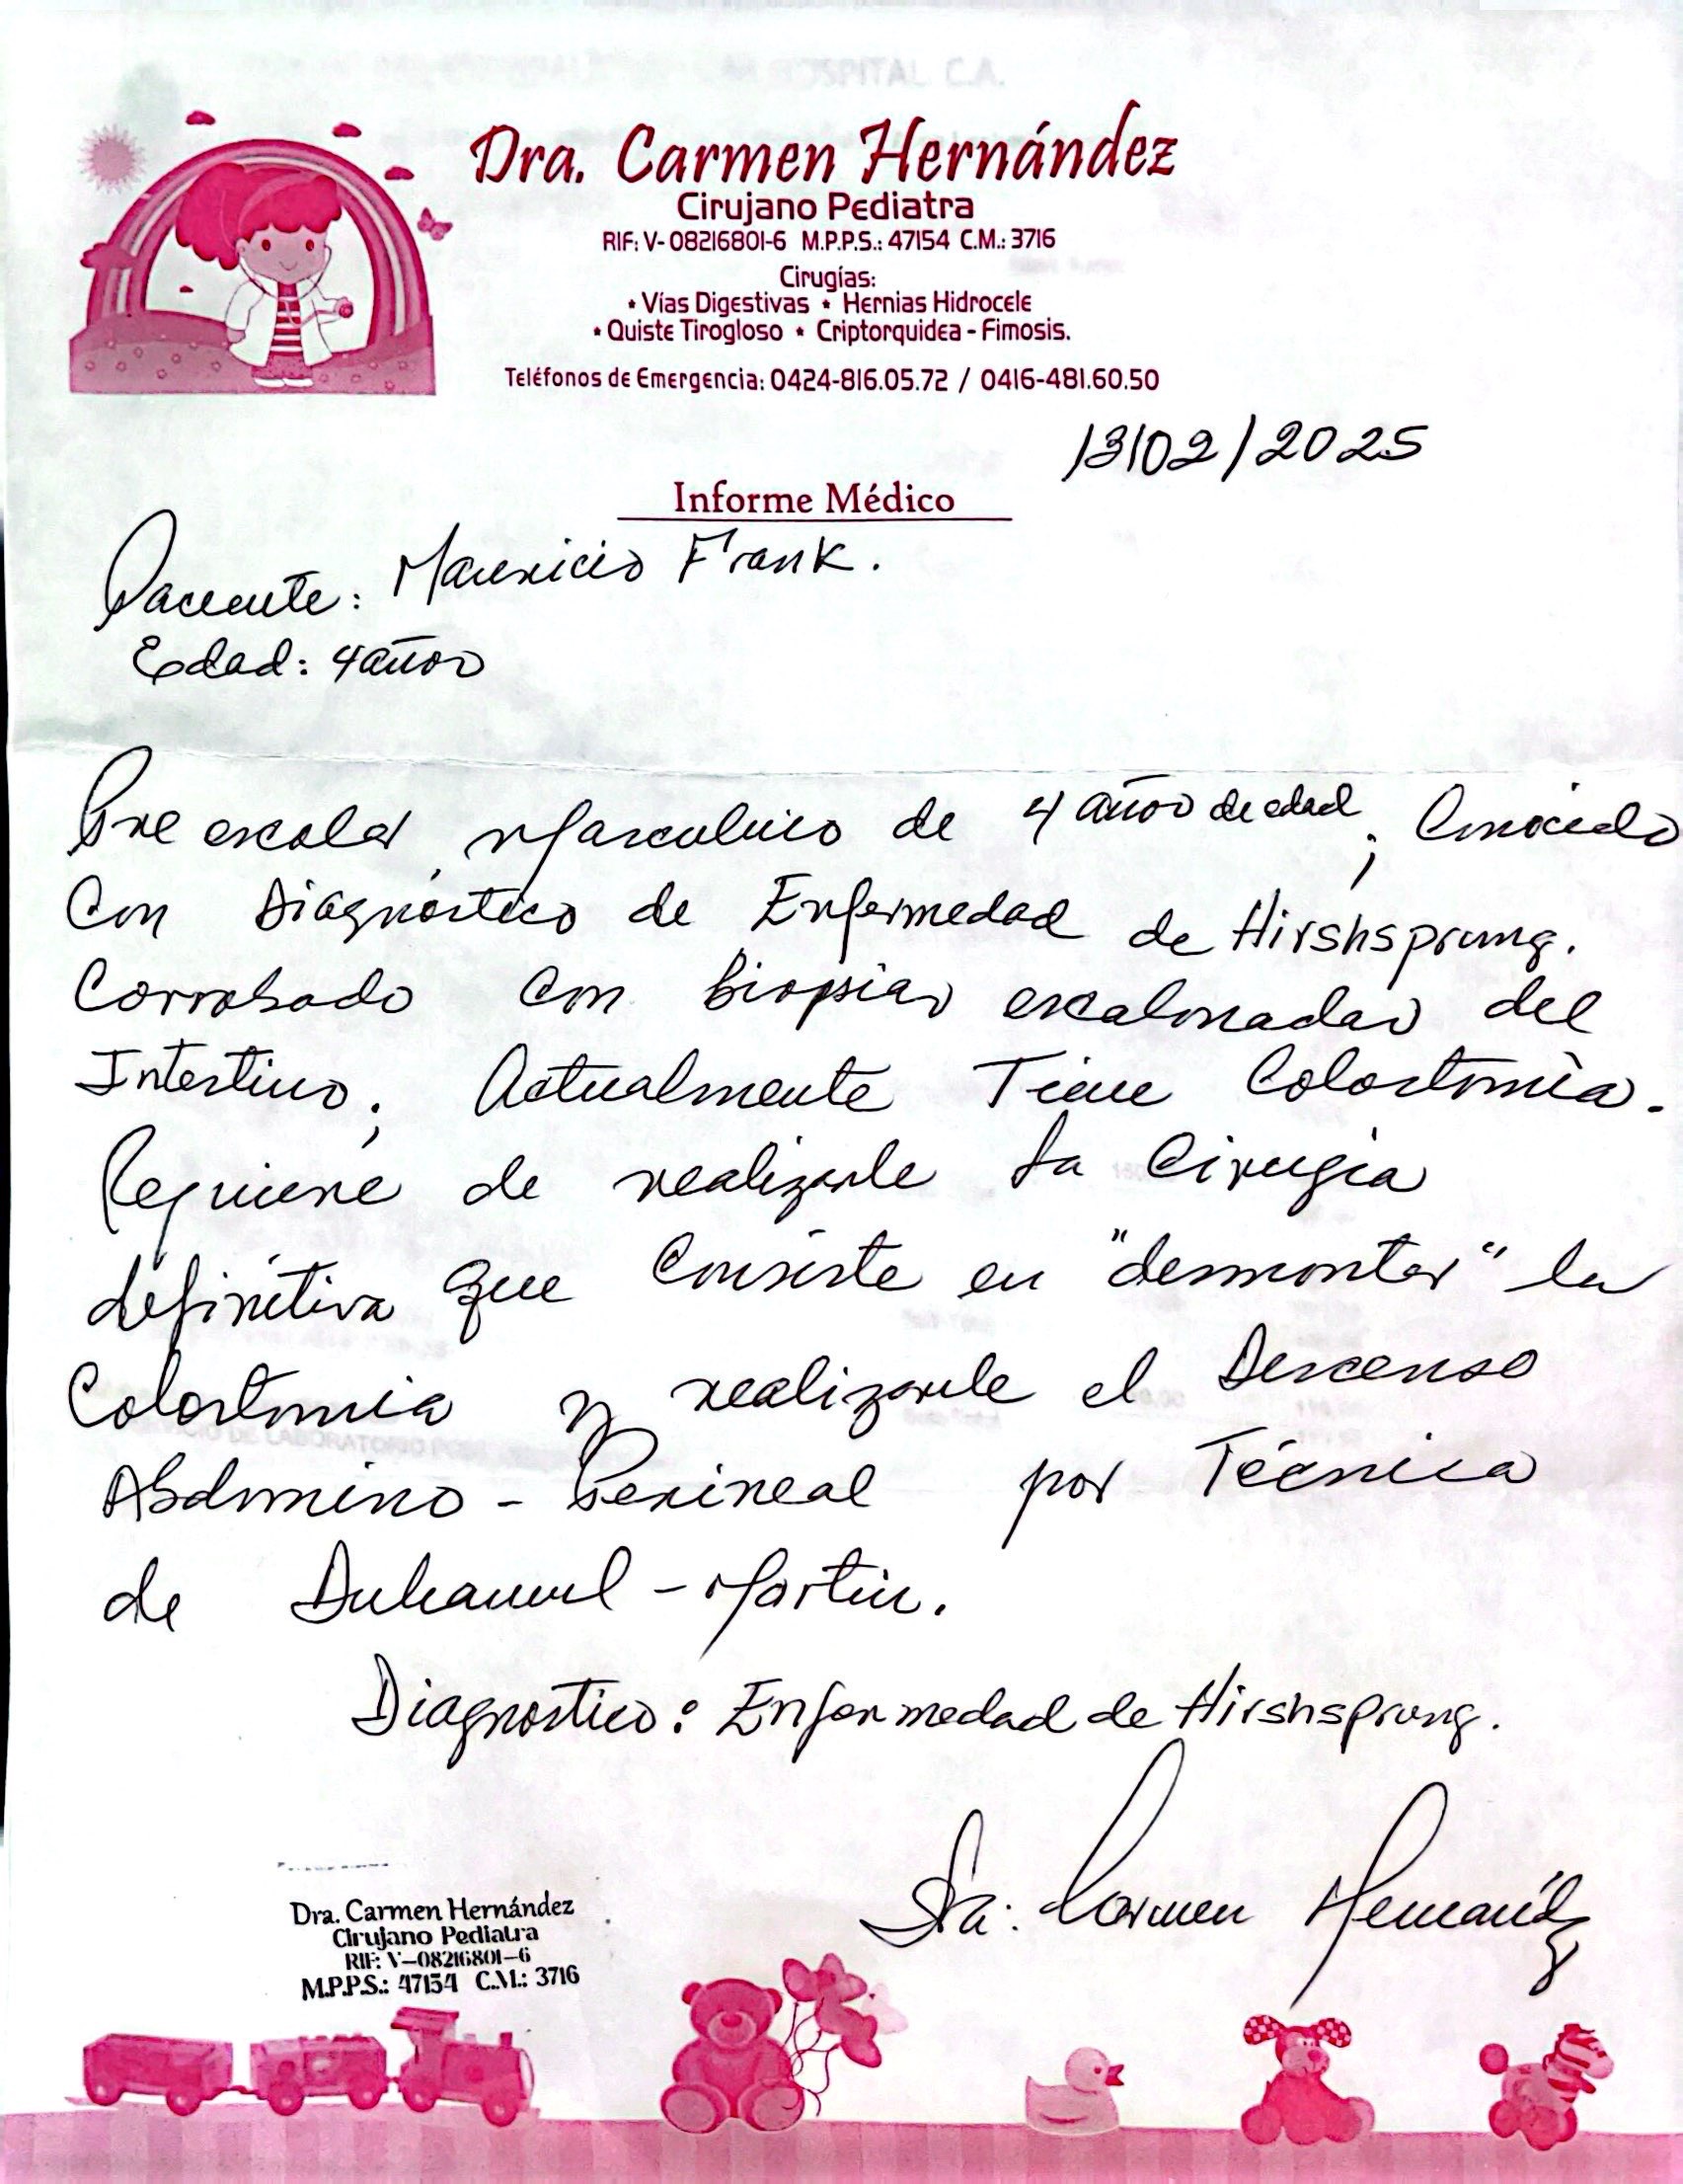 HOSPITAL C.A.
Dra. Carmen Hernández
Cirujano Pediatra
RIF: V- 08216801-6 M.P.P.S.: 47154 C.M.: 3716
Cirugías:
• Vías Digestivas • Hernias Hidrocele
• Quiste Tirogloso • Criptorquidea - Fimosis.
Teléfonos de Emergencia: 0424-816.05.72 / 0416-481.60.50
13/02/2025
Informe Médico
Paciente: Mauricio Frank.
Edad: 4 años
Pre escolar Masculino de 4 años de edad; Conocido
Con Diagnóstico de Enfermedad de Hirshsprung.
Corrobado con Biopsias escalonadas del
Intestino; Actualmente Tiene Colostomía.
Requiere de realizarle la Cirugía
definitiva que Consiste en "desmontar" la
Colostomia y realizarle el Descenso
Abdomino - Perineal por Técnica
de Duhamel - Martin.
Diagnostico: Enfermedad de Hirshsprung.
Dra: Carmen Hernández
Dra. Carmen Hernández
Cirujano Pediatra
RIF: V-08216801-6
M.P.P.S.: 47154 C.M.: 3716